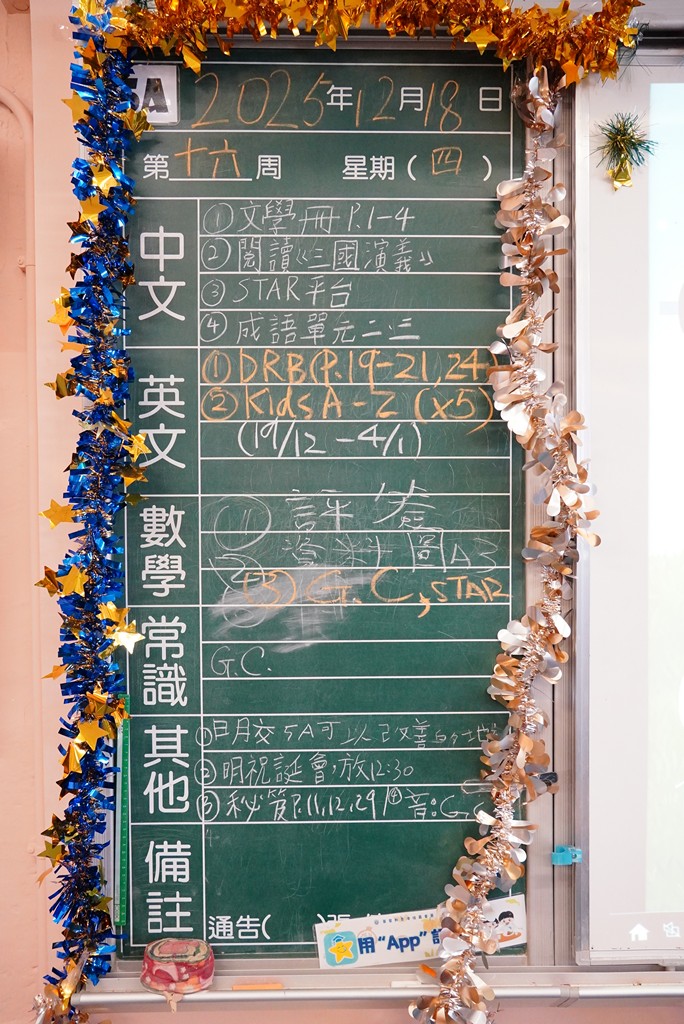 A
2025年12月18日
第十六周 星期(四)
中文
①文學冊 P.1-4
②閱讀《三國演義》
③STAR平台
④成語單元二、三
英文
①DRB(P.19-21,24)
②Kids A-Z (x5)
(19/12-4/1)
數學
(1)評簽
(2)資料圖A3
(3) G.C, STAR
常識
G.C.
其他
①明交5A可以改善的地
②明祝誕會,放12:30
③秘笈P.11,12,29/④音:G.
備註
通告( )
用"App"